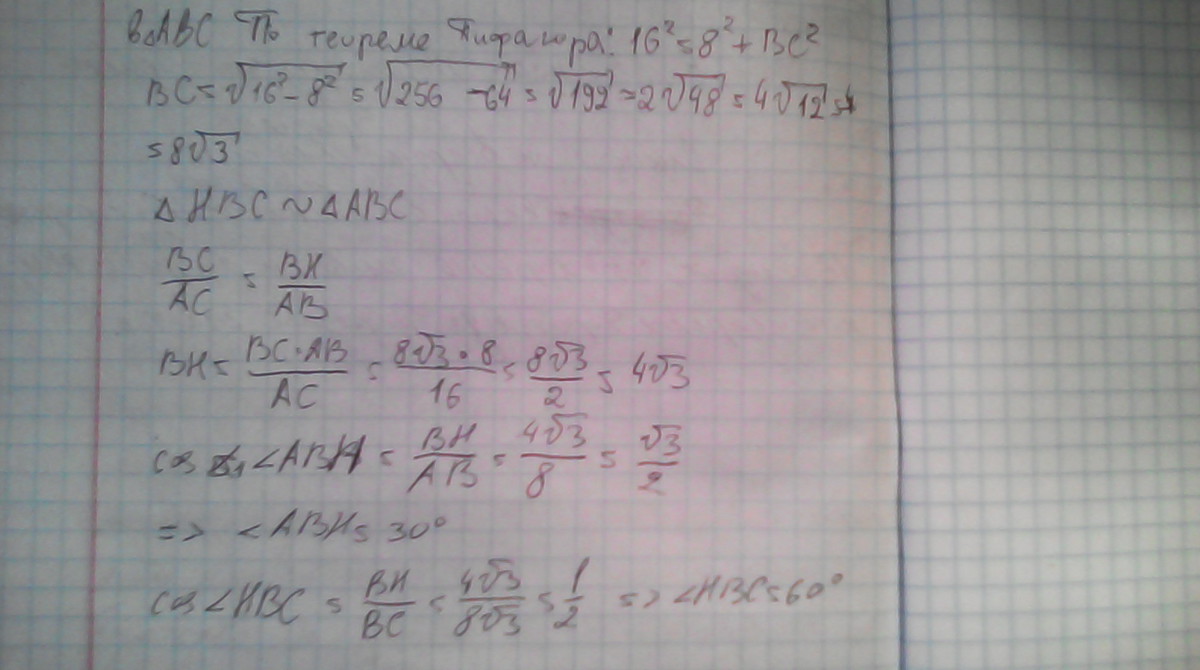 В△ABC По теореме Пифагора: 16² = 8² + BC²
BC = √16² - 8² = √256 - 64 = √192 = 2√48 = 4√12 =
= 8√3
△HBC ~ △ABC
BC/AC = BH/AB
BH = BC·AB/AC = 8√3·8/16 = 8√3/2 = 4√3
cos ∠ABH = BH/AB = 4√3/8 = √3/2
=> ∠ABH = 30°
cos ∠HBC = BH/BC = 4√3/8√3 = 1/2 => ∠HBC = 60°